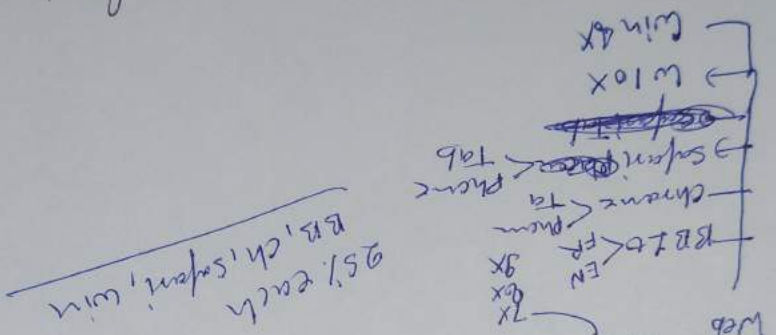 Web
7X
8X
9X
BB10 < EN
FR
Chrome < Phone
Ta
→ Safari < Phone
Tab
→ W10X
Win 8X
25% each
BB, Ch, Safari, Win